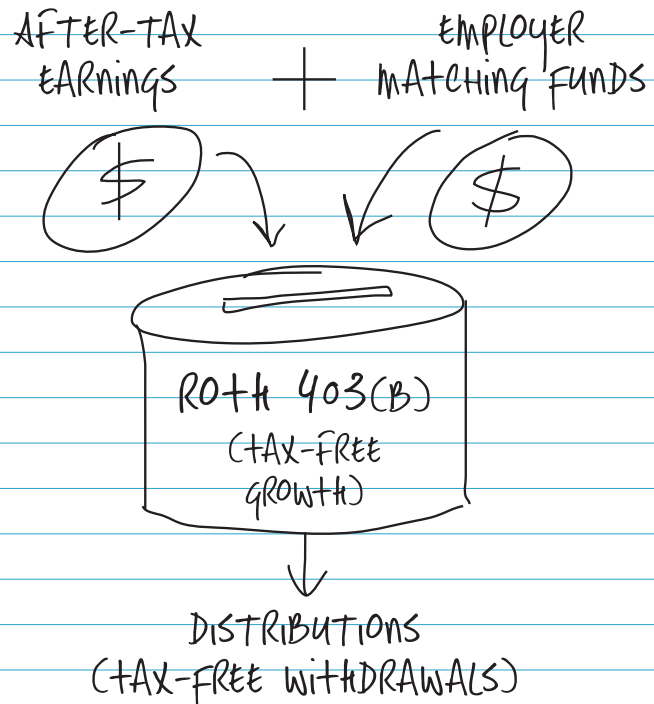 AFTER-TAX
EARNINGS
+
EMPLOYER
MATCHING FUNDS
$
$
ROTH 403(B)
(TAX-FREE
GROWTH)
DISTRIBUTIONS
(TAX-FREE WITHDRAWALS)